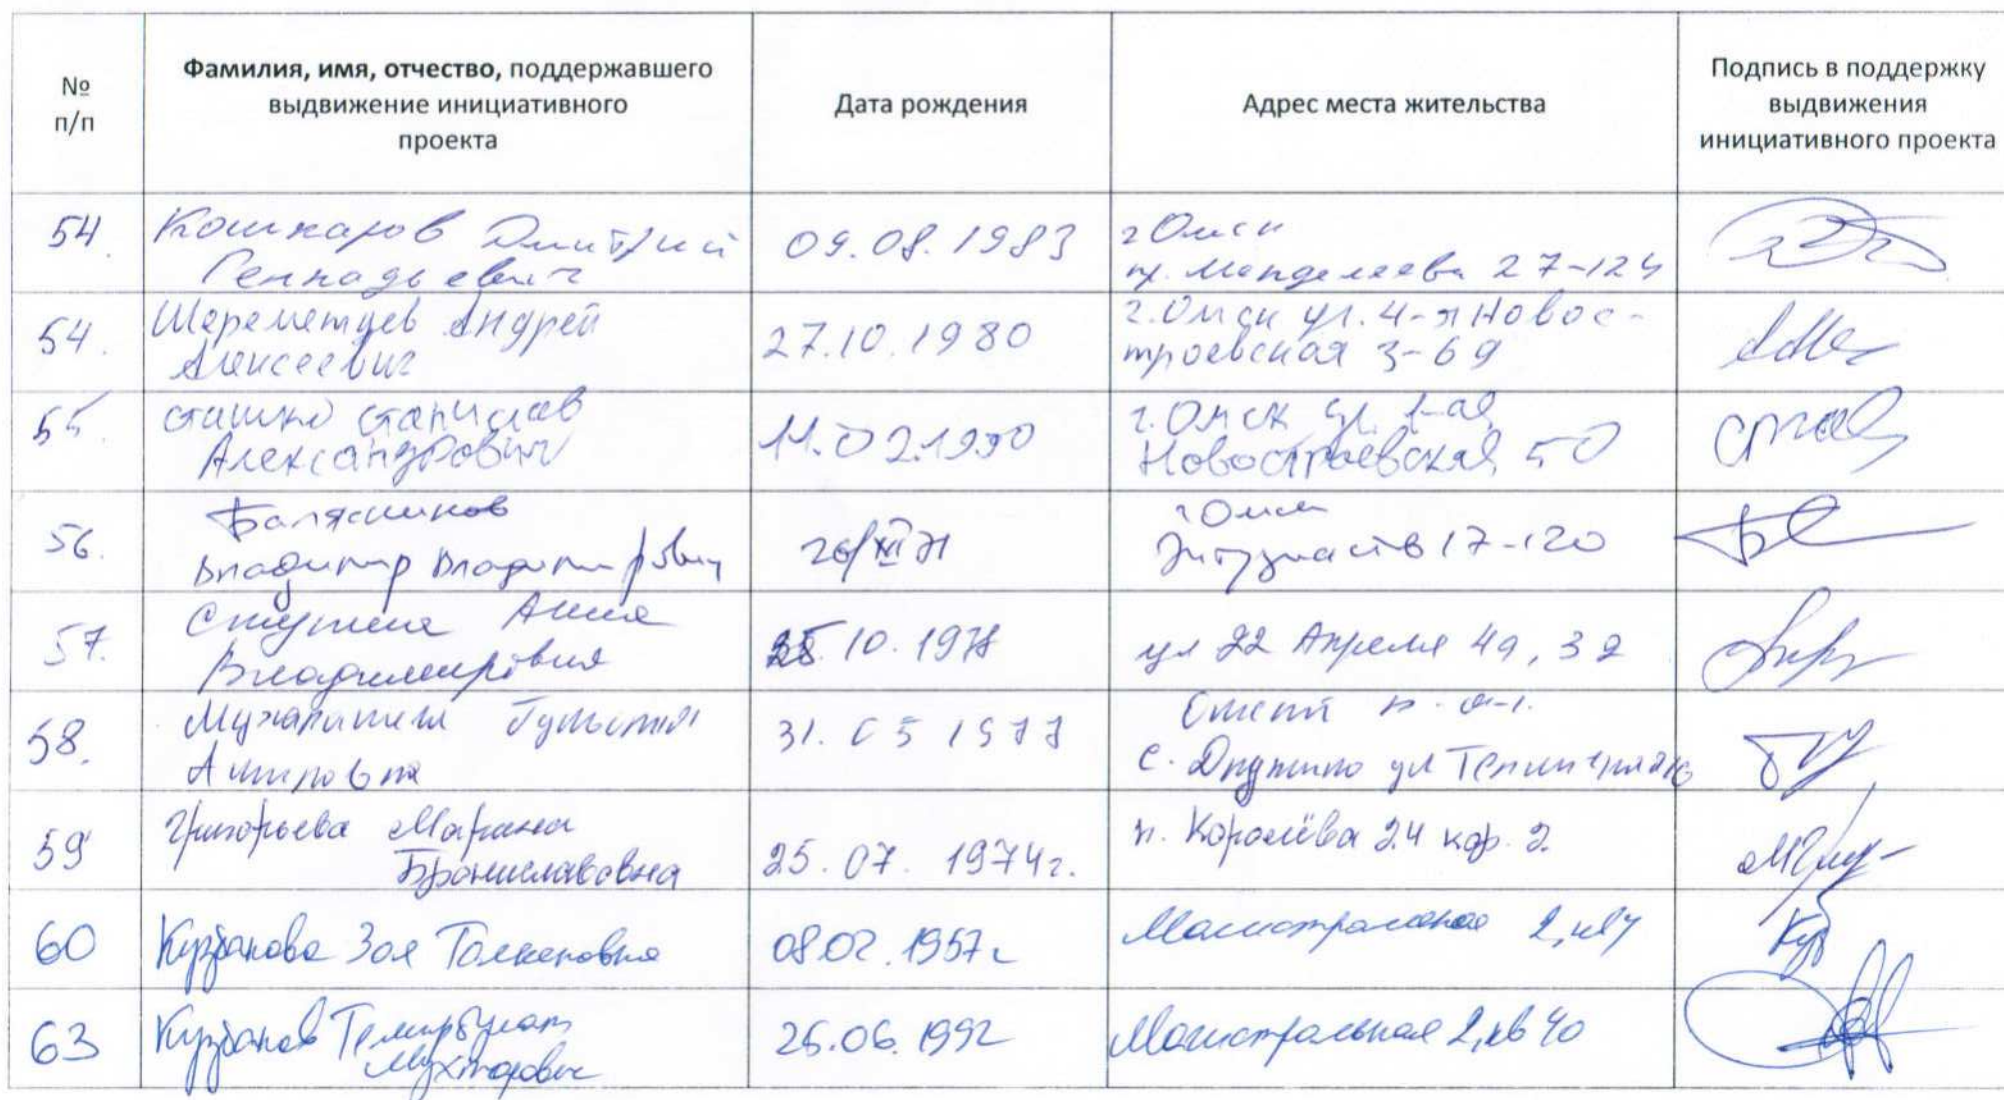 №
п/п
Фамилия, имя, отчество, поддержавшего
выдвижение инициативного
проекта
Дата рождения
Адрес места жительства
Подпись в поддержку
выдвижения
инициативного проекта
54.
Кошкаров Дмитрий
Геннадьевич
09.08.1983
г Омск
пр. Менделеева 27-124
54.
Шереметцев Андрей
Алексеевич
27.10.1980
г. Омск ул. 4-я Новос-
троевская 3-69
55.
Сташко Станислав
Александрович
11.02.1990
г. Омск ул. 1-ая
Новостроевская 50
56.
Балясников
Владимир Владимирович
г Омск
Энтузиастов 17-120
57.
Анна
Владимировна
10.197
ул 22 Апреля 49, 32
58.
31.05 1977
с. ул
59
Григорьева Марина
Брониславовна
25.07. 1974г.
п. Королёва 24 кор. 2.
60
Кузбанова Зоя Толкеновна
08.02.1957г
Магистральная 2,
63
Кузбанов Темирбулат
Мухтарович
26.06.1992
Магистральная 2, кв 40